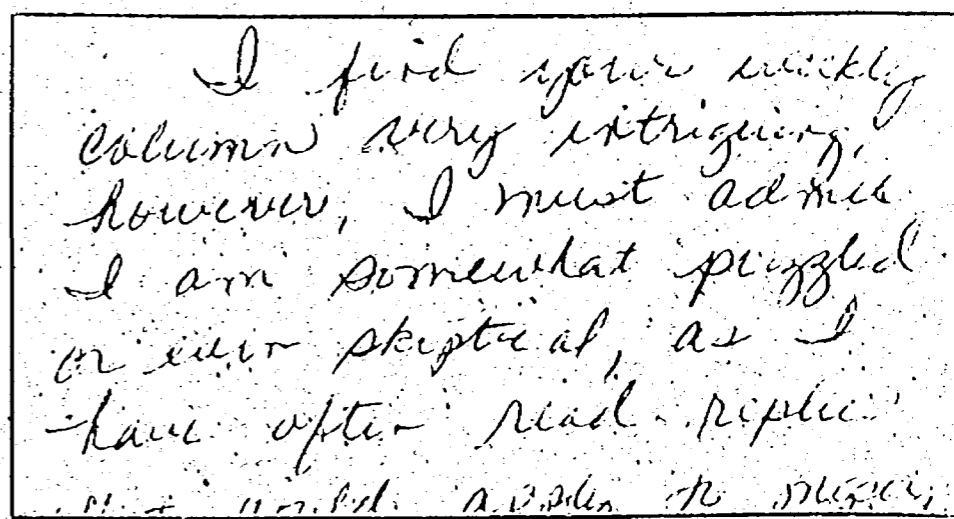 I find your weekly
column very intriguing,
however, I must admit
I am somewhat puzzled
or even skeptical, as I
have often read replies